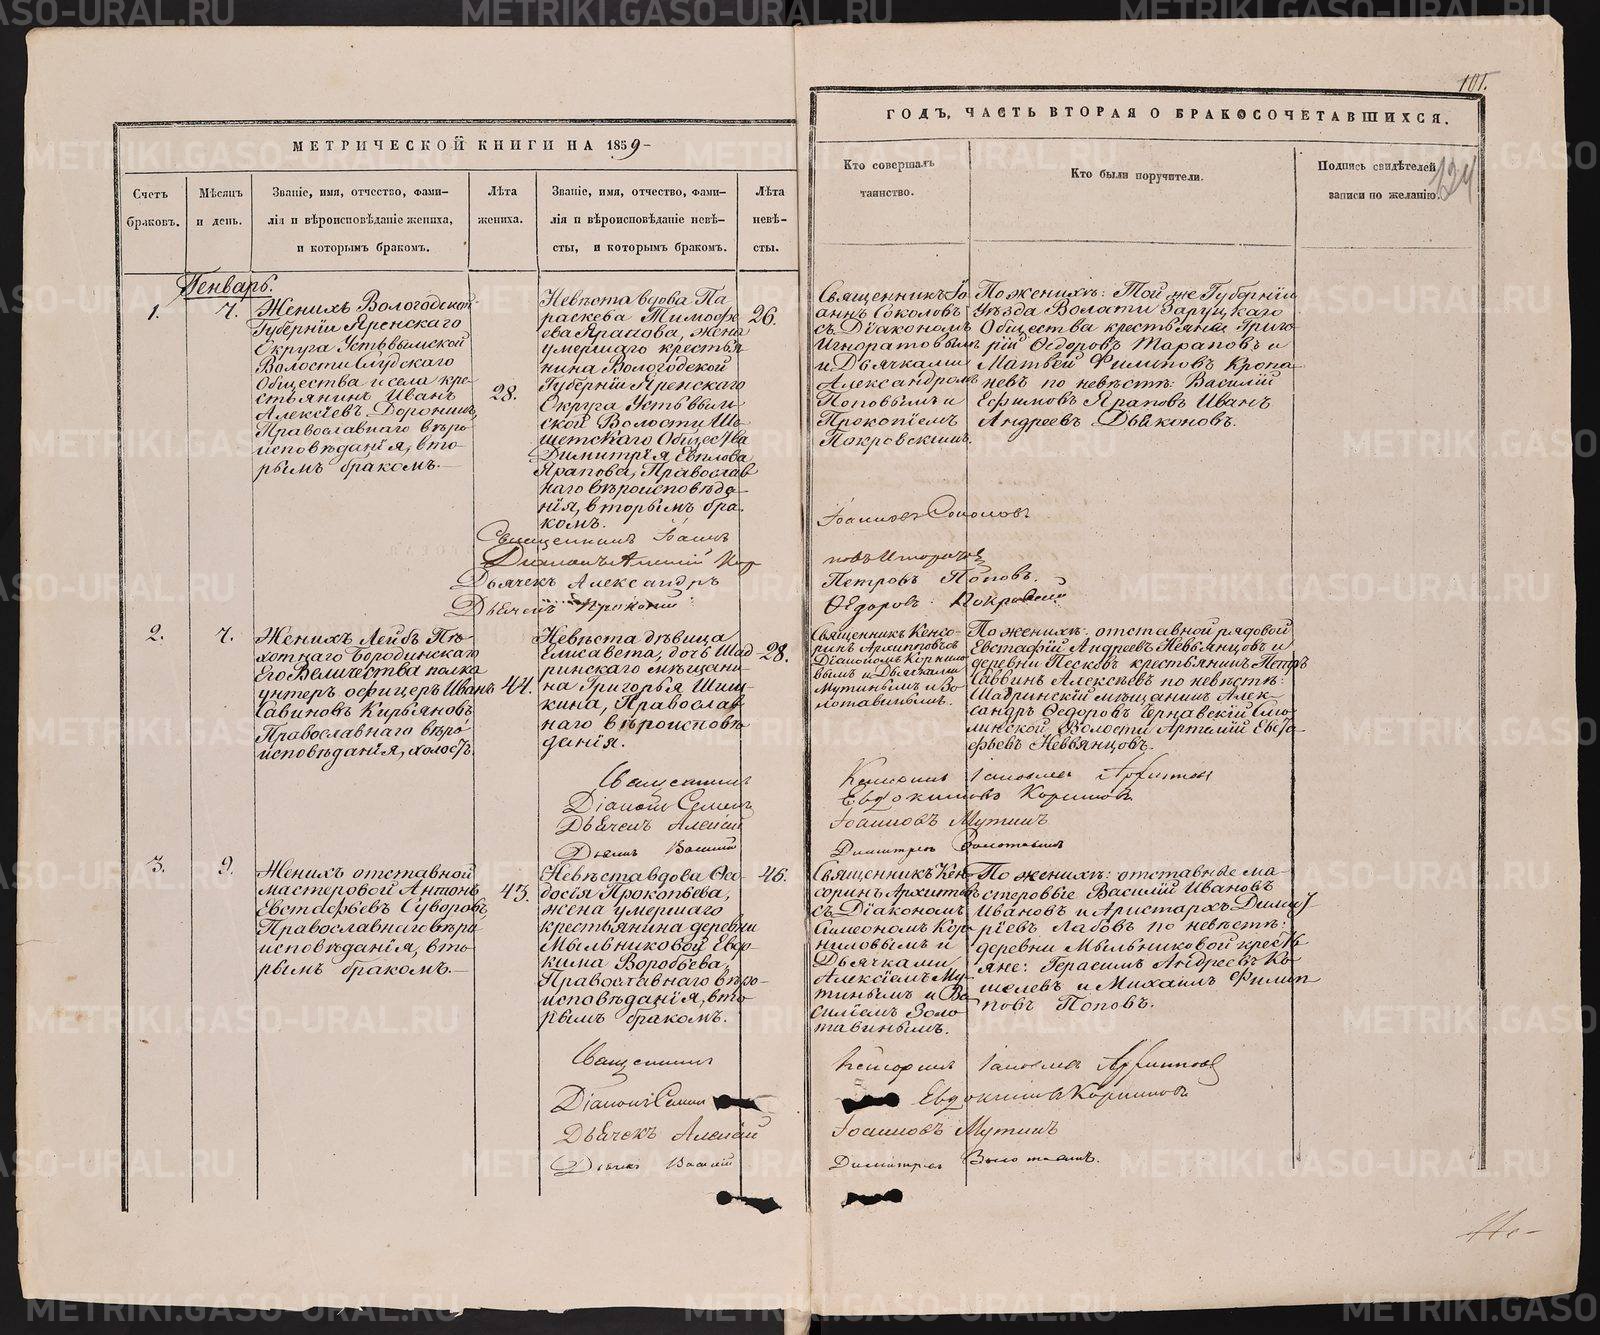 101.
МЕТРИЧЕСКОЙ КНИГИ НА 1859
ГОДЪ, ЧАСТЬ ВТОРАЯ О БРАКОСОЧЕТАВШИХСЯ.
124
Счетъ
браковъ.
Мѣсяцъ
и день.
Званіе, имя, отчество, фами-
лія и вѣроисповѣданіе жениха,
и которымъ бракомъ.
Лѣта
жениха.
Званіе, имя, отчество, фами-
лія и вѣроисповѣданіе невѣ-
сты, и которымъ бракомъ.
Лѣта
невѣ-
сты.
Кто совершалъ
таинство.
Кто были поручители.
Подпись свидѣтелей
записи по желанію.
Генварь.
1.
7.
Женихъ Вологодской
Губерніи Яренскаго
Округа Устьвымской
Волости Слудскаго
Общества и села кре-
стьянинъ Иванъ
Алексѣевъ Доронинъ,
Православнаго вѣро
исповѣданія, вто-
рымъ бракомъ.
28.
Невѣста вдова Па
раскева Тимофе
ева Ярапова, жена
умершаго крестья
нина Вологодской
Губерніи Яренскаго
Округа Устьвым-
ской Волости
Общества
Димитрія Евплова
Ярапова, Православ
наго вѣроисповѣда-
нія, вторымъ бра-
комъ.
26.
Священникъ Іо
аннъ Соколовъ
съ Діакономъ
Игноратовымъ
и Дьячками
Александромъ
Поповымъ и
Прокопіемъ
Покровскимъ.
По женихѣ: Той же Губерніи
Уѣзда Волости Заруцкаго
Общества крестьяне Григо
рій Ѳедоровъ Тараповъ и
Матвей Филиповъ Кропа
невъ по невѣстѣ: Василій
Ефимовъ Яраповъ Иванъ
Андреевъ Дьяконовъ.
Священникъ Іоаннъ
Іоанновъ Соколовъ
Діаконъ Алексій
Дьячекъ Александръ
Петровъ Поповъ.
Дьячекъ Прокопій
Ѳедоровъ Покровскій
2.
7.
Женихъ Лейбъ Пѣ-
хотнаго Бородинскаго
Его Величества полка
унтеръ офицеръ Иванъ
Савиновъ Кирьяновъ
Православнаго вѣро
исповѣданія, холостъ.
44.
Невѣста дѣвица
Елисавета, дочь Шад
ринскаго мѣщани-
на Григорья Шиш
кина, Православ
наго вѣроисповѣ
данія.
28.
Священникъ Кенсо-
ринъ Архипповъ съ
Діакономъ Корнило
вымъ и Дьячками
Мутинымъ и Зо
лотавинымъ.
По женихѣ: отставной рядовой
Евстафій Андреевъ Невьянцовъ и
деревни Песковъ крестьянинъ Петръ
Саввинъ Алексѣевъ по невѣстѣ:
Шадринскій мѣщанинъ Алек-
сандръ Ѳедоровъ Чернавскій
Волости Артемій Евста
фьевъ Невьянцовъ.
Священникъ
Кенсоринъ Іаковлевъ Архиповъ
Діаконъ Семенъ
Евдокимовъ Корниловъ
Дьячекъ Алексій
Іоанновъ Мутинъ
Дьячекъ Василій
Димитріевъ Золотавинъ
3.
9.
Женихъ отставной
мастеровой Антонъ
Евстафьевъ Суворовъ,
Православнаго вѣро
исповѣданія, вто-
рымъ бракомъ.
43.
Невѣста вдова Ѳео
досія Прокопьева,
жена умершаго
крестьянина деревни
Мыльниковой Евдо-
кима Воробьева,
Православнаго вѣро-
исповѣданія, вто
рымъ бракомъ.
45.
Священникъ Кен
соринъ Архиповъ
съ Діакономъ
Симеономъ Кор
ниловымъ и
Дьячками
Алексіемъ Му-
тинымъ и Ва
силіемъ Золо-
тавинымъ.
По женихѣ: отставные ма-
стеровые Василій Ивановъ
Ивановъ и Аристархъ Димит
ріевъ Лабовъ по невѣстѣ:
деревни Мыльниковой кресть
яне: Герасимъ Андреевъ Ко
шелевъ и Михаилъ Филип
повъ Поповъ.
Священникъ
Кенсоринъ Іаковлевъ Архиповъ
Діаконъ Семенъ
Евдокимовъ Корниловъ
Дьячекъ Алексій
Іоанновъ Мутинъ
Дьячекъ Василій
Димитріевъ Золотавинъ.
METRIKI.GASO-URAL.RU